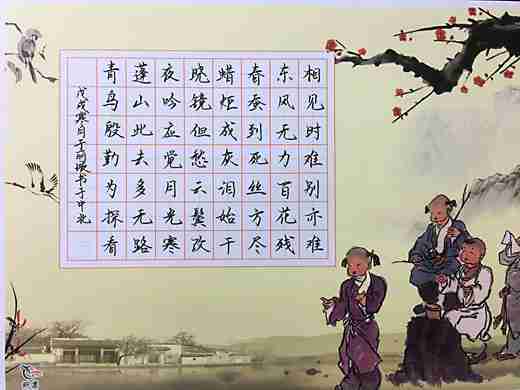 相见时难别亦难
东风无力百花残
春蚕到死丝方尽
蜡炬成灰泪始干
晓镜但愁云鬓改
夜吟应觉月光寒
蓬山此去多无路
青鸟殷勤为探看
戊戌寒月于